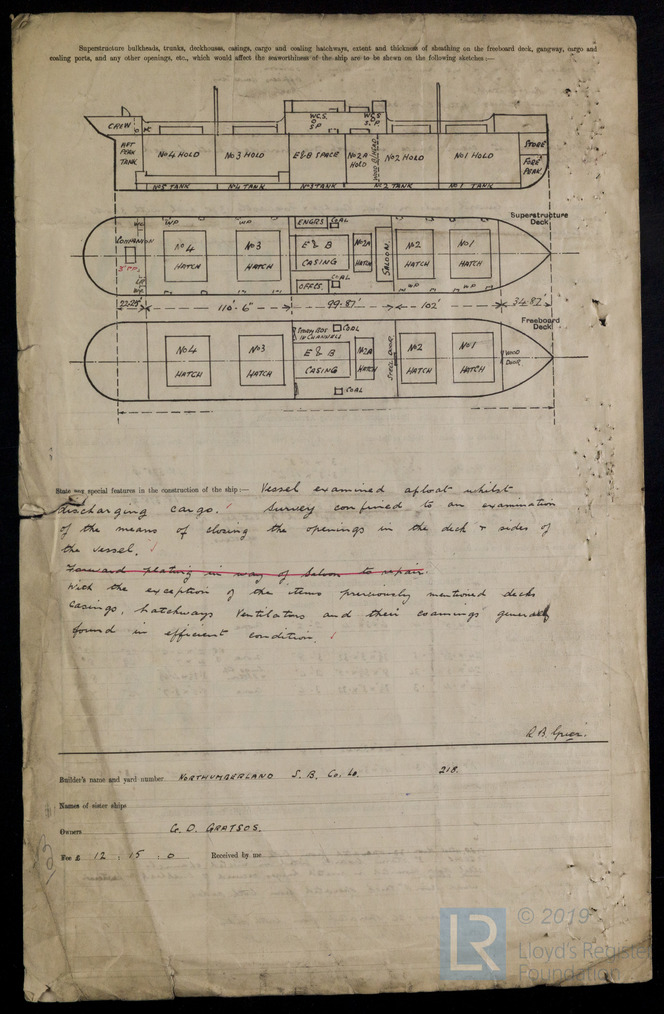 Superstructure bulkheads, trunks, deckhouses, casings, cargo and coaling hatchways, extent and thickness of sheathing on the freeboard deck, gangway, cargo and
coaling ports, and any other openings, etc., which would affect the seaworthiness of the ship are to be shewn on the following sketches:—
CREW
W.C.S.
S.P.
AFT PEAK TANK
No 4 HOLD
No 3 HOLD
E & B SPACE
No 2A HOLD
WOOD B/HEAD
No 2 HOLD
No 1 HOLD
STORE
FORE PEAK
No 5 TANK
No 4 TANK
No 3 TANK
No 2 TANK
No 1 TANK
Superstructure Deck
WP
WP
ENGRS
COAL
COMPANION
No 4 HATCH
No 3 HATCH
E & B CASING
No 2A HATCH
SALOON
No 2 HATCH
No 1 HATCH
COAL
OFFCS.
WP
WP
110'-6"
99.87'
102'
34.82'
Freeboard Deck
COAL
No 4 HATCH
No 3 HATCH
E & B CASING
No 2A HATCH
STEEL DOOR
No 2 HATCH
No 1 HATCH
WOOD DOOR
COAL
State any special features in the construction of the ship :— Vessel examined afloat whilst
discharging cargo. Survey confined to an examination
of the means of closing the openings in the deck & sides of
the vessel.
Forward plating in way of Saloon to repair.
With the exception of the items previously mentioned decks
casings, hatchways Ventilators and their coamings generally
found in efficient condition.
Builder's name and yard number NORTHUMBERLAND S. B. Co. Ld. 218.
Names of sister ships
Owners G. D. GRATSOS.
Fee £ 12 : 15 : 0 Received by me
LR
© 2019
Lloyd's Register
Foundation